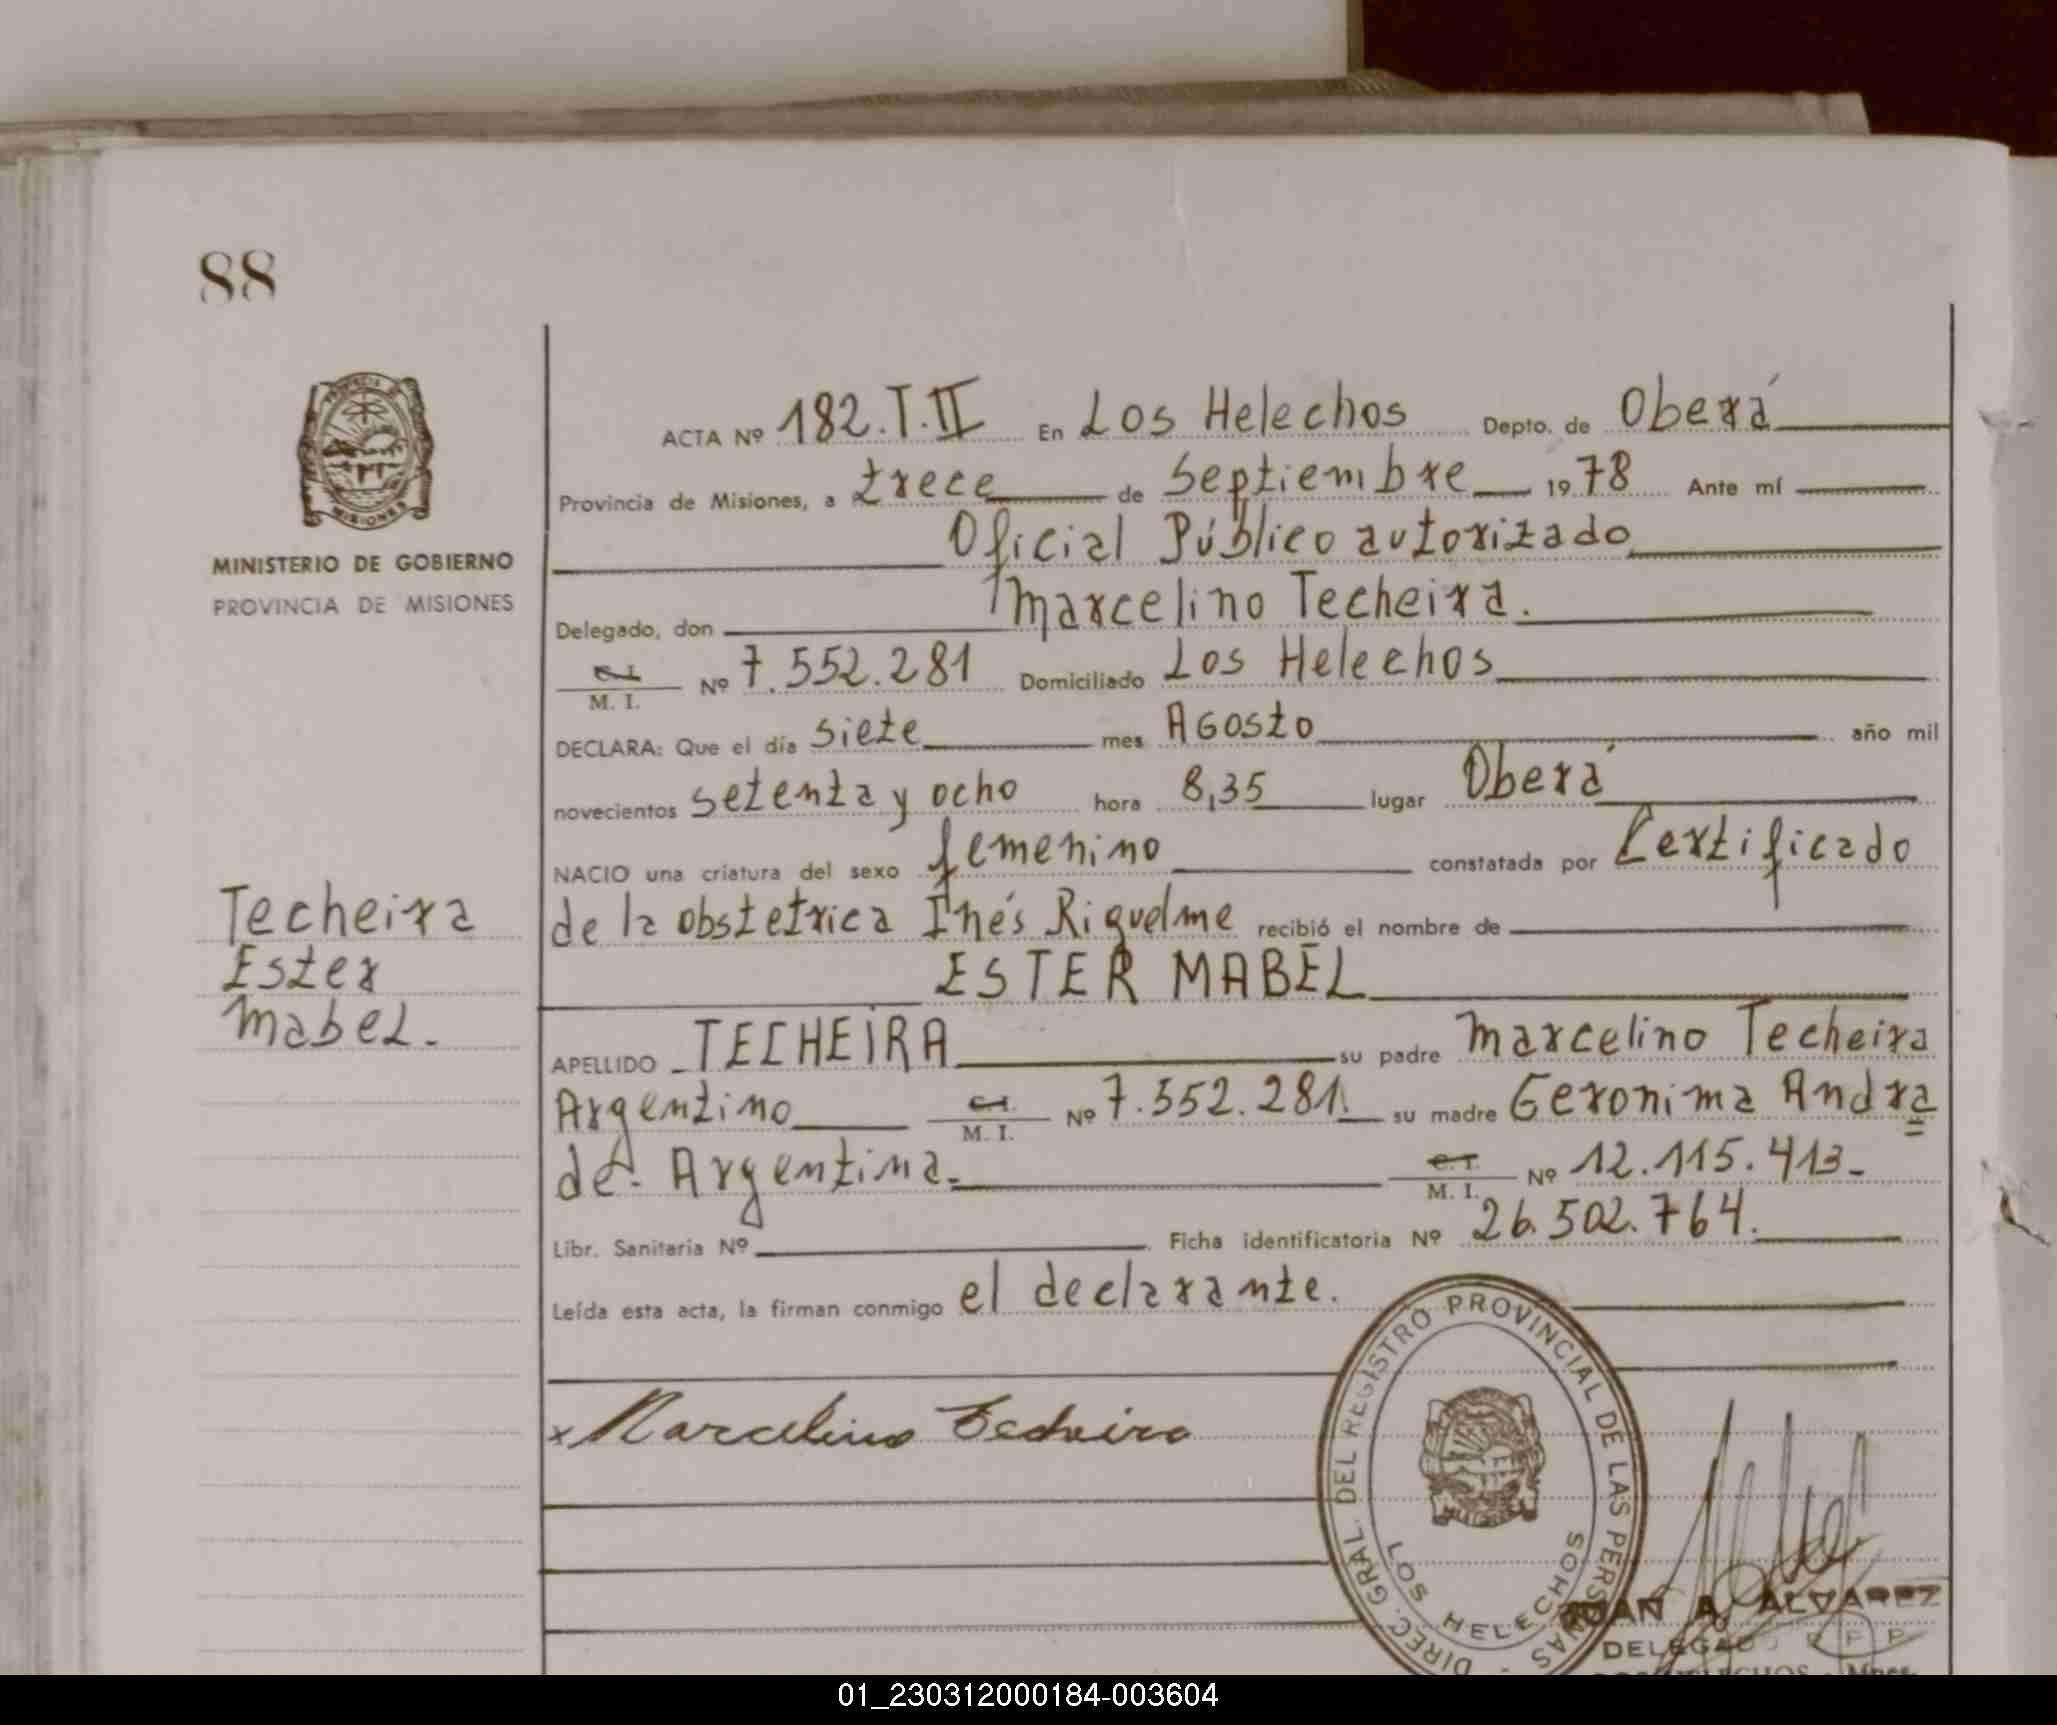 88
MINISTERIO DE GOBIERNO
PROVINCIA DE MISIONES
Techeira
Ester
Mabel.
ACTA Nº 182.T.II En Los Helechos Depto. de Oberá
Provincia de Misiones, a trece de Septiembre 1978 Ante mí
Oficial Público autorizado
Delegado, don Marcelino Techeira.
C.I.
M. I. Nº 7.552.281 Domiciliado Los Helechos
DECLARA: Que el día siete mes Agosto año mil
novecientos setenta y ocho hora 8,35 lugar Oberá
NACIO una criatura del sexo femenino constatada por Certificado
de la obstetrica Inés Riquelme recibió el nombre de
ESTER MABEL
APELLIDO TECHEIRA su padre Marcelino Techeira
Argentino C.I.
M. I. Nº 7.552.281. su madre Geronima Andra
de. Argentina. C.I.
M. I. Nº 12.115.413.
Libr. Sanitaria Nº Ficha identificatoria Nº 26.502.764.
Leída esta acta, la firman conmigo el declarante.
x Marcelino Techeira
DIREC. GRAL. DEL REGISTRO PROVINCIAL DE LAS PERSONAS
LOS HELECHOS
MISIONES
JUAN A. ALVAREZ
DELEGADO R P P
LOS HELECHOS - Mnes.
01_230312000184-003604